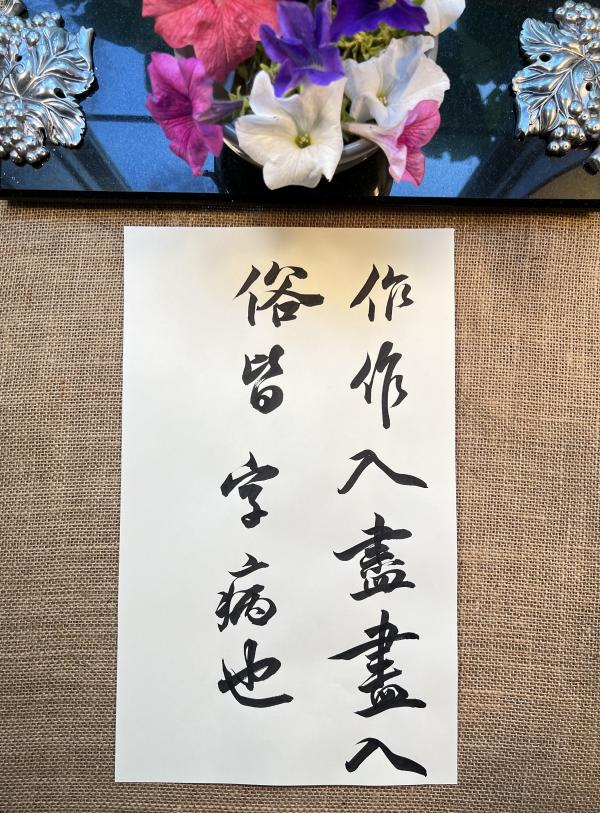 作作入盡盡入
俗皆字病也